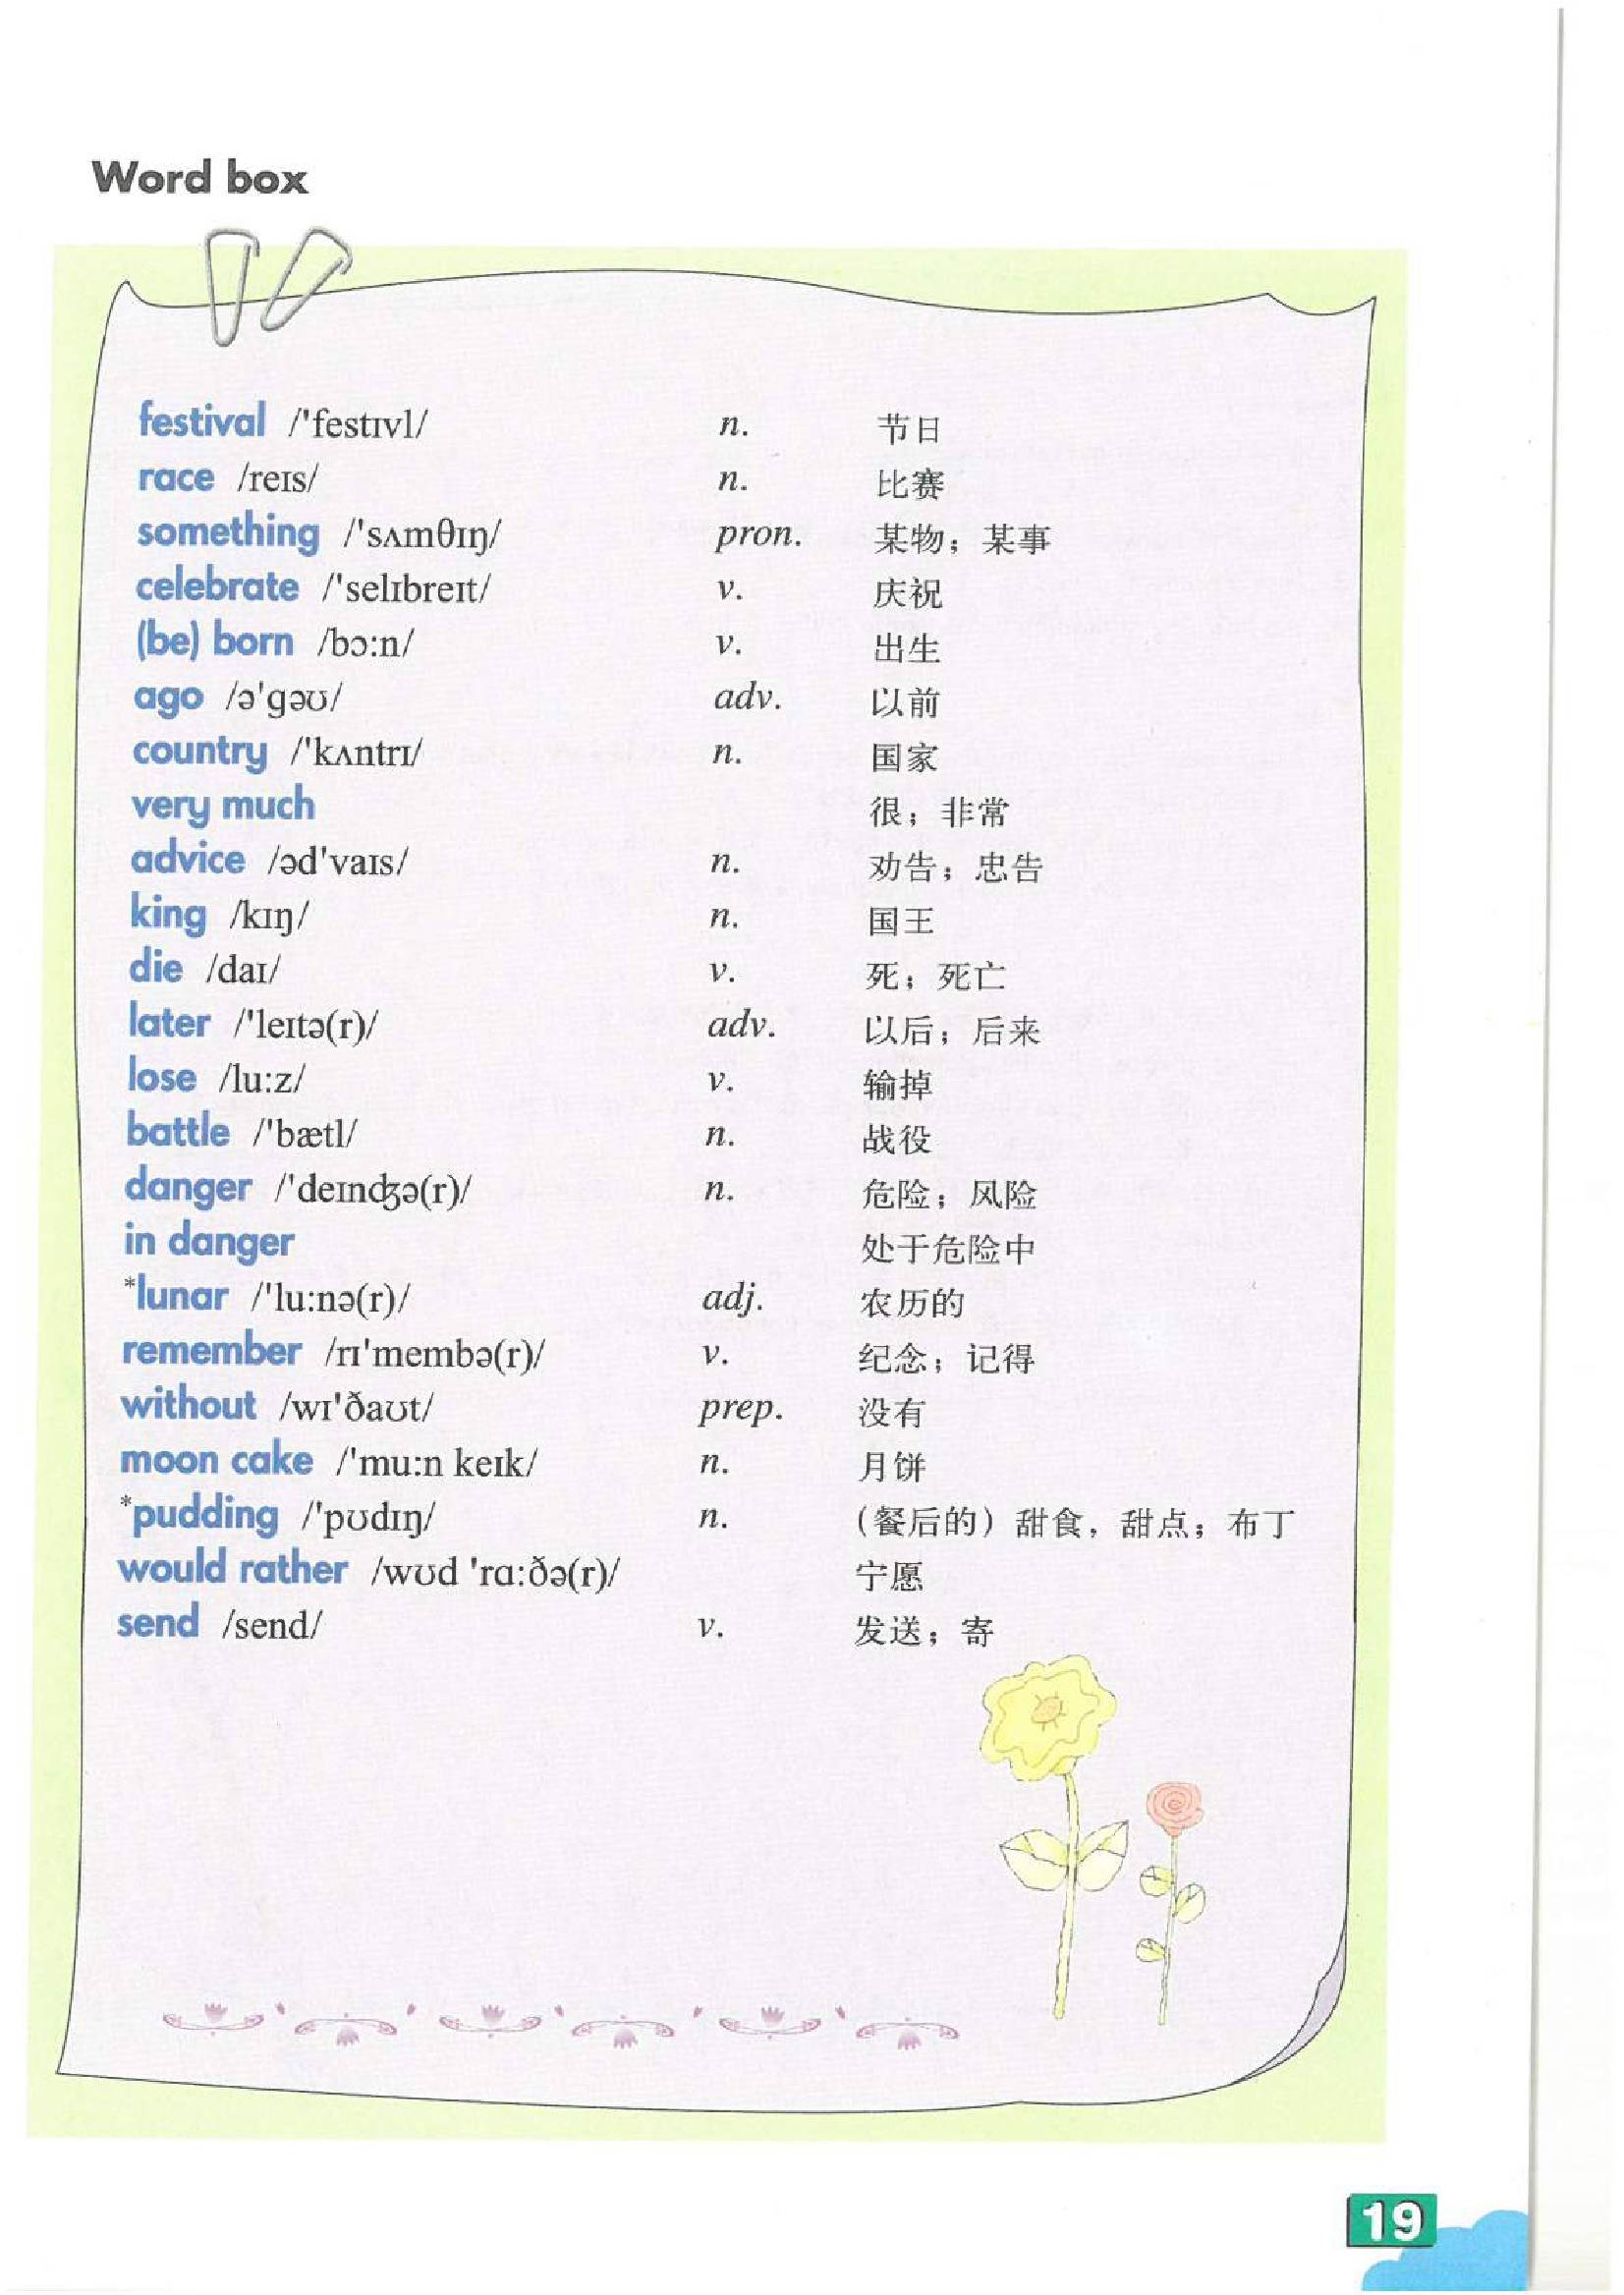 Word box
festival /'festɪvl/ n. 节日
race /reɪs/ n. 比赛
something /'sʌmθɪŋ/ pron. 某物；某事
celebrate /'selɪbreɪt/ v. 庆祝
(be) born /bɔ:n/ v. 出生
ago /ə'gəʊ/ adv. 以前
country /'kʌntrɪ/ n. 国家
very much 很；非常
advice /əd'vaɪs/ n. 劝告；忠告
king /kɪŋ/ n. 国王
die /daɪ/ v. 死；死亡
later /'leɪtə(r)/ adv. 以后；后来
lose /lu:z/ v. 输掉
battle /'bætl/ n. 战役
danger /'deɪnʤə(r)/ n. 危险；风险
in danger 处于危险中
*lunar /'lu:nə(r)/ adj. 农历的
remember /rɪ'membə(r)/ v. 纪念；记得
without /wɪ'ðaʊt/ prep. 没有
moon cake /'mu:n keɪk/ n. 月饼
*pudding /'pʊdɪŋ/ n. (餐后的) 甜食，甜点；布丁
would rather /wʊd 'rɑ:ðə(r)/ 宁愿
send /send/ v. 发送；寄
19